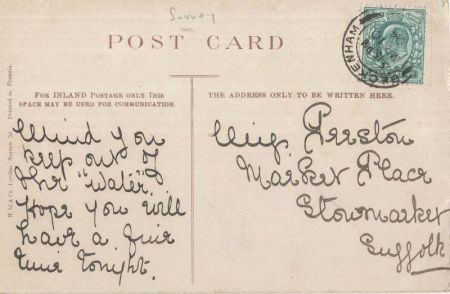 Surrey
POST CARD
FOR INLAND POSTAGE ONLY. THIS
SPACE MAY BE USED FOR COMMUNICATION.
THE ADDRESS ONLY TO BE WRITTEN HERE.
Mind you
keep out of
the "Water".
Hope you will
have a fine
time tonight.
Preston
Market Place
Stowmarket
Suffolk
BECKENHAM
Printed in Prussia.